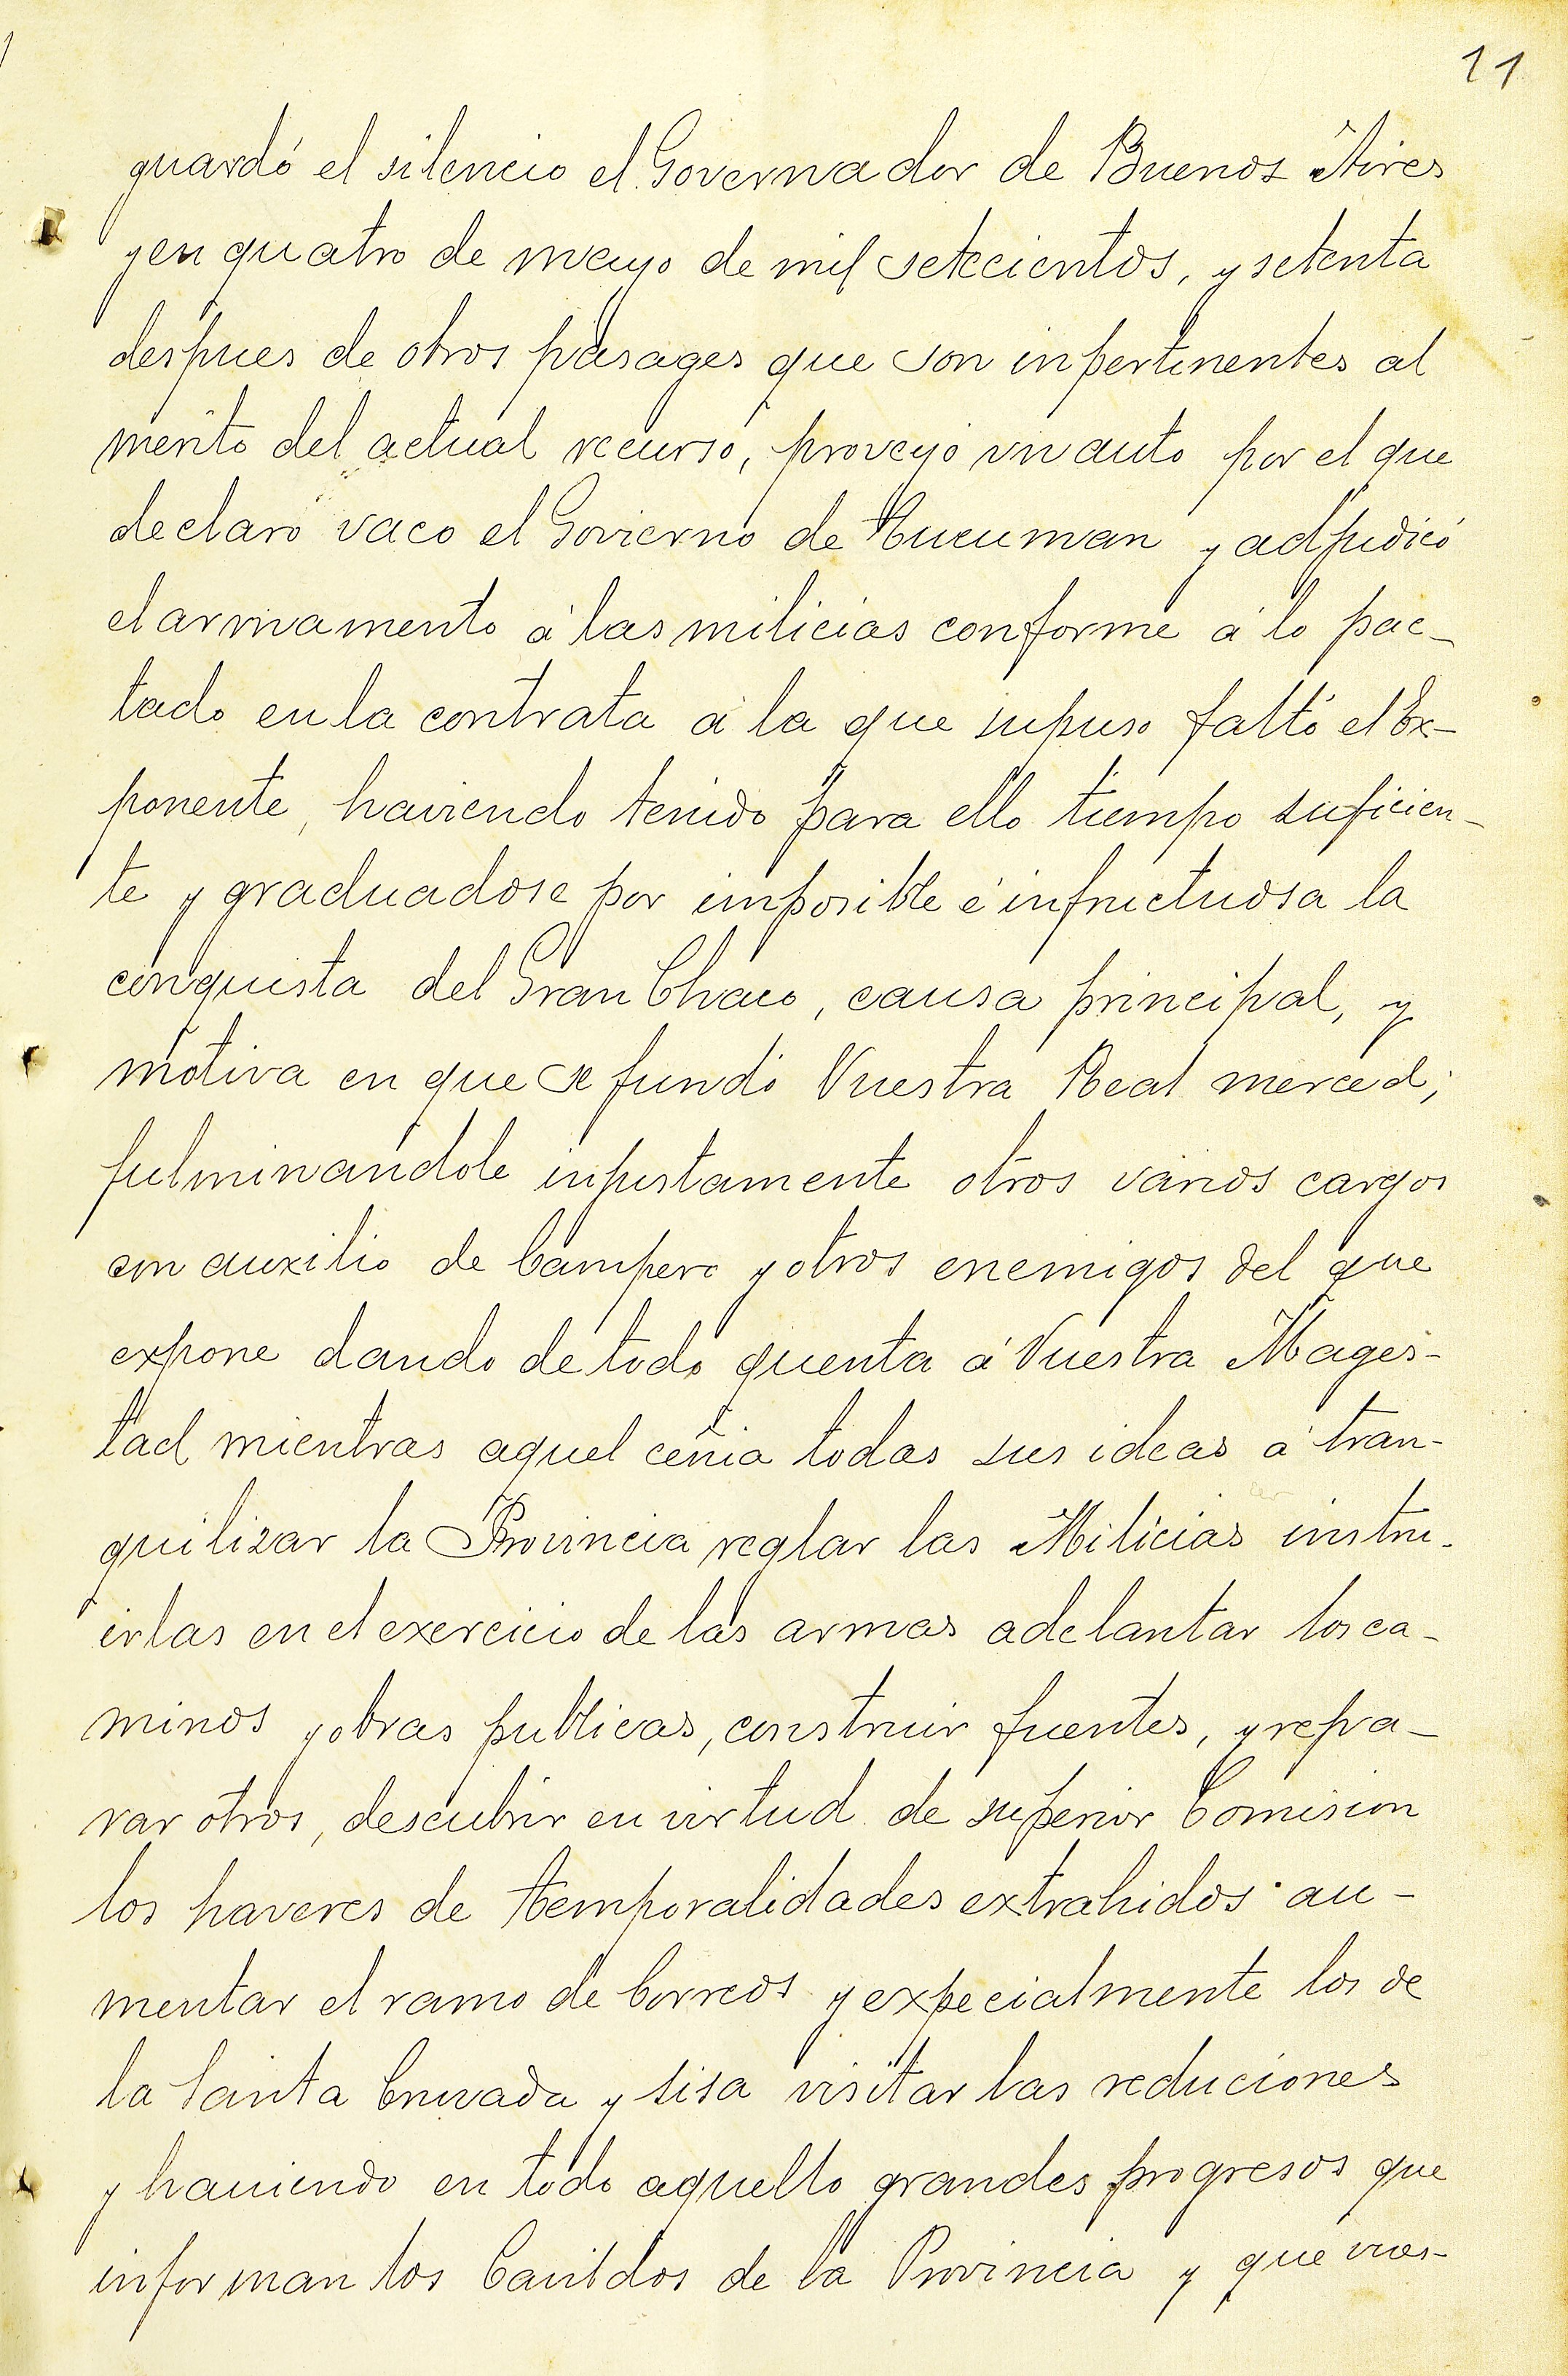 11
guardó el silencio el Governador de Buenos Aires
y en quatro de mayo de mil setecientos, y setenta
despues de otros pasages que son inpertinentes al
merito del actual recurso, proveyó vn auto por el que
declaró vaco el Govierno de Tucuman y adjudicó
el armamento á las milicias conforme á lo pac-
tado en la contrata á la que supuso faltó el Ex-
ponente, haviendo tenido para ello tiempo suficien-
te y graduadose por imposible é infructuosa la
conquista del Gran Chaco, causa principal, y
motiva en que se fundó Vuestra Real merced;
fulminandole injustamente otros varios cargos
con auxilio de Campero y otros enemigos del que
expone dando de todo quenta á Vuestra Mages-
tad mientras aquel ceñia todas sus ideas á tran-
quilizar la Provincia reglar las Milicias instru-
irlas en el exercicio de las armas adelantar los ca-
minos y obras publicas, construir fuentes, y repa-
rar otros, descubrir en virtud de superior Comision
los haveres de temporalidades extrahidos au-
mentar el ramo de Correos y expecialmente los de
la Santa Cruzada y sisa visitar las reduciones
y haciendo en todo aquello grandes progresos que
informan los Cavildos de la Provincia y que vues-